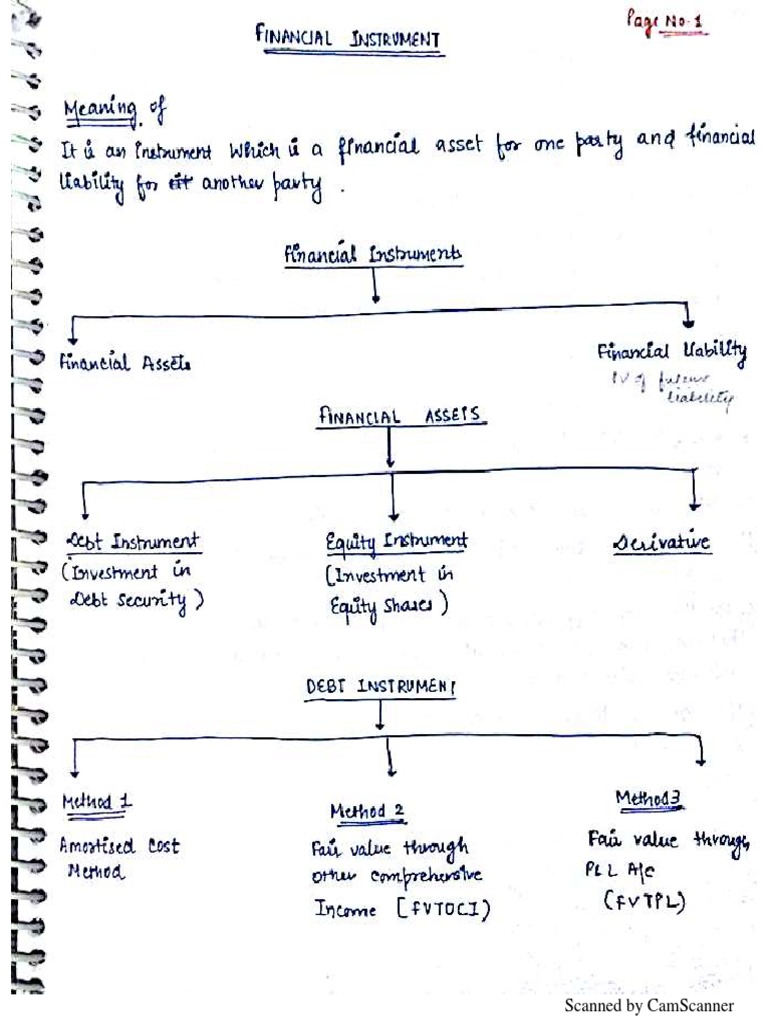 Page No. 1
FINANCIAL INSTRUMENT
Meaning of
It is an instrument which is a financial asset for one party and financial
liability for another party.
Financial Instruments
Financial Assets
Financial Liability
PV of future
liability
FINANCIAL ASSETS
Debt Instrument
Equity Instrument
Derivative
(Investment in
(Investment in
Debt Security)
Equity Shares)
DEBT INSTRUMENT
Method 1
Method 2
Method 3
Amortised Cost
Fair value through
Fair value through
Method
other comprehensive
P&L A/c
Income [FVTOCI)
(FVTPL)
Scanned by CamScanner